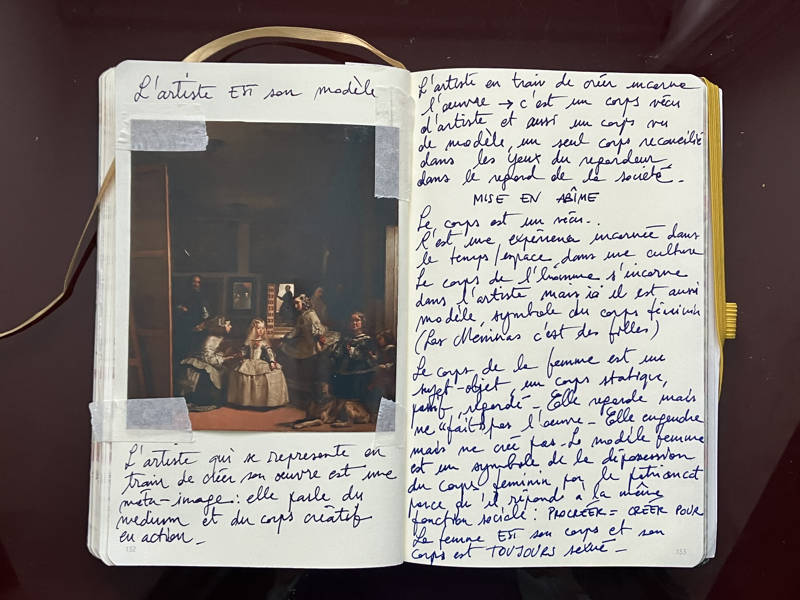 L'artiste EST son modèle
L'artiste qui se représente en
train de créer son œuvre est une
méta-image : elle parle du
medium et du corps créatif
en action _
132
L'artiste en train de créer incarne
l'œuvre → c'est un corps vécu
d'artiste et aussi un corps vu
de modèle, un seul corps recueilli
dans les yeux du regardeur
dans le regard de la société _
MISE EN ABÎME
Le corps est un vécu..
C'est une expérience incarnée dans
le temps/espace, dans une culture
Le corps de l'homme s'incarne
dans l'artiste mais ici il est aussi
modèle, symbole du corps féminin
(Las Meninas c'est des filles)
Le corps de la femme est un
sujet-objet, un corps statique,
passif, regardé _ Elle regarde mais
ne "fait" pas l'œuvre _ Elle engendre
mais ne crée pas _ Le modèle femme
est un symbole de la dépossession
du corps féminin par le patriarcat
parce qu'il répond à la même
fonction sociale : PROCRÉER = CRÉER POUR
La femme EST son corps et son
corps est TOUJOURS sexué _
133